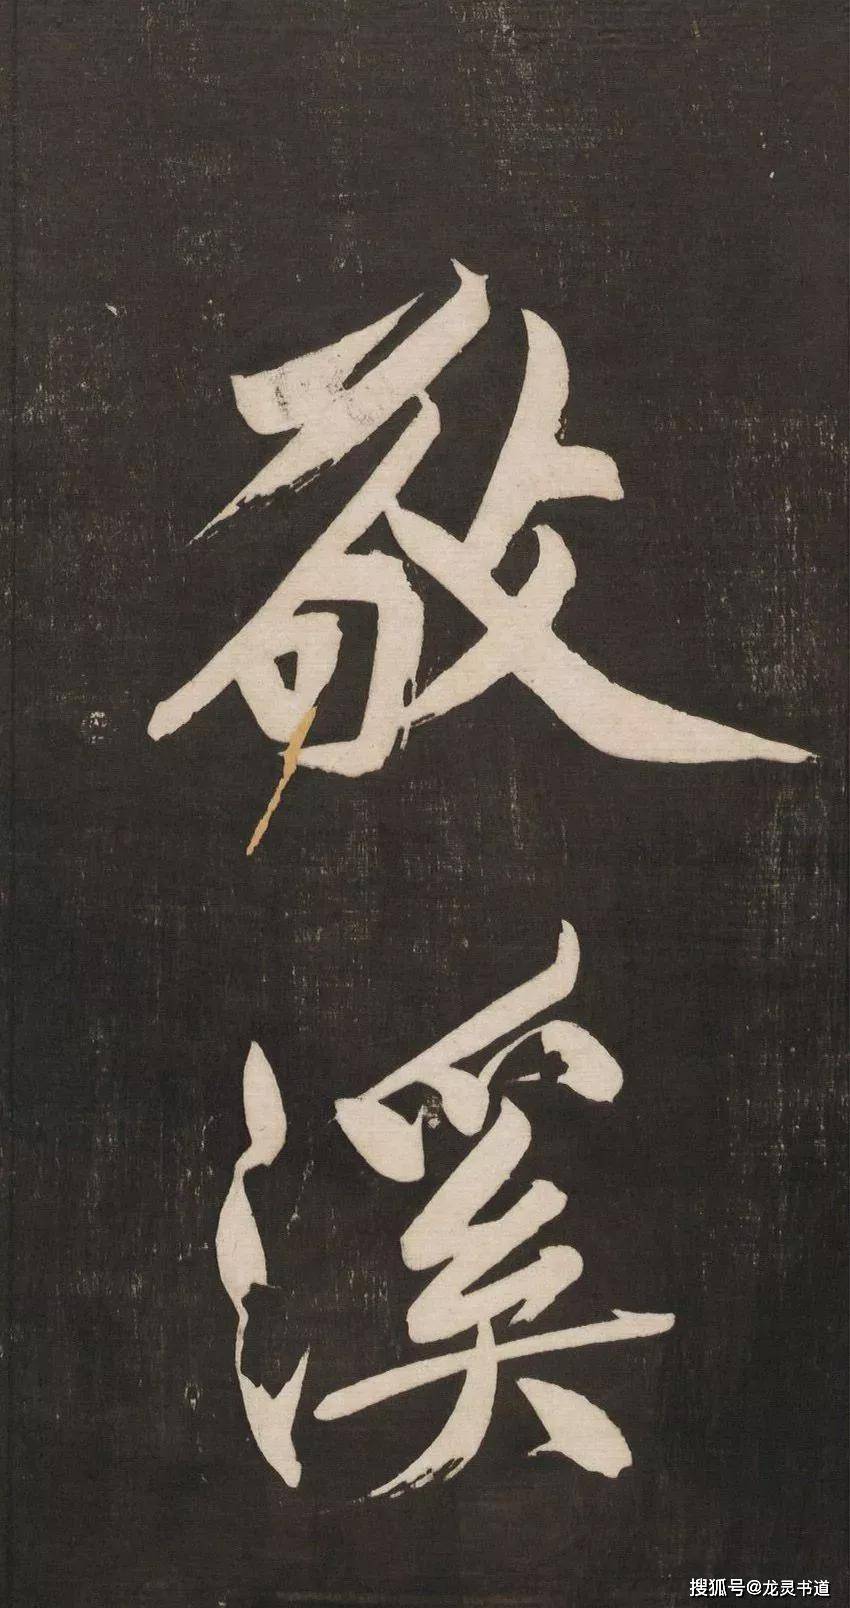 敬
溪
搜狐号@龙灵书道